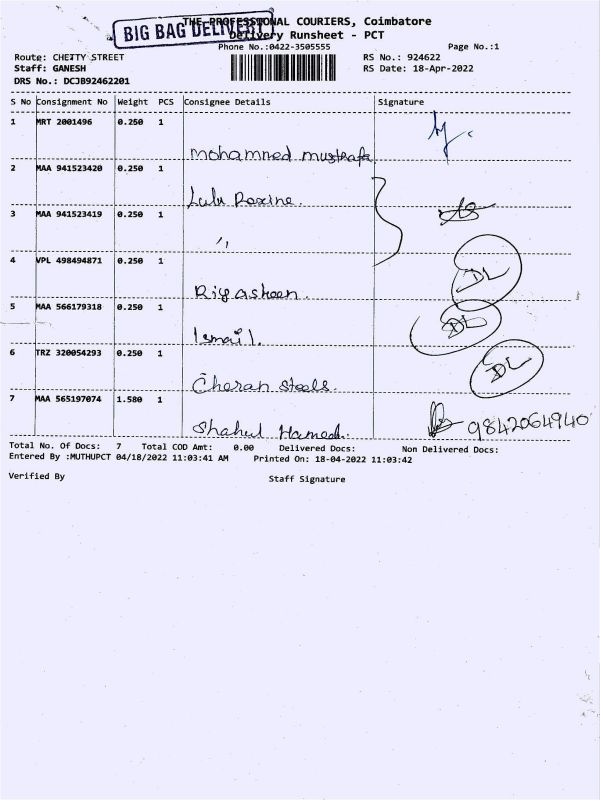 BIG BAG DELIVERY
THE PROFESSIONAL COURIERS, Coimbatore
Delivery Runsheet - PCT
Phone No.:0422-3505555 Page No.:1
Route: CHETTY STREET RS No.: 924622
Staff: GANESH RS Date: 18-Apr-2022
DRS No.: DCJB92462201
S No Consignment No Weight PCS Consignee Details Signature
1 MRT 2001496 0.250 1
mohamned mustrafa
2 MAA 941523420 0.250 1
Lulu
3 MAA 941523419 0.250 1
"
4 VPL 498494871 0.250 1 DL
Riyaskeen.
5 MAA 566179318 0.250 1 DL
Ismail.
6 TRZ 320054293 0.250 1 DL
Cheran Steels.
7 MAA 565197074 1.580 1
Shahul Hamed. 9842064940
Total No. Of Docs: 7 Total COD Amt: 0.00 Delivered Docs: Non Delivered Docs:
Entered By :MUTHUPCT 04/18/2022 11:03:41 AM Printed On: 18-04-2022 11:03:42
Verified By Staff Signature